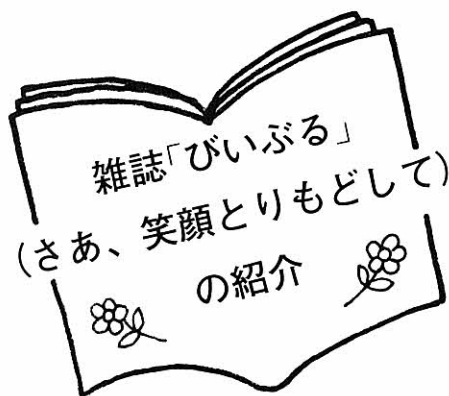 雑誌「びいぶる」
(さあ、笑顔とりもどして)
の紹介